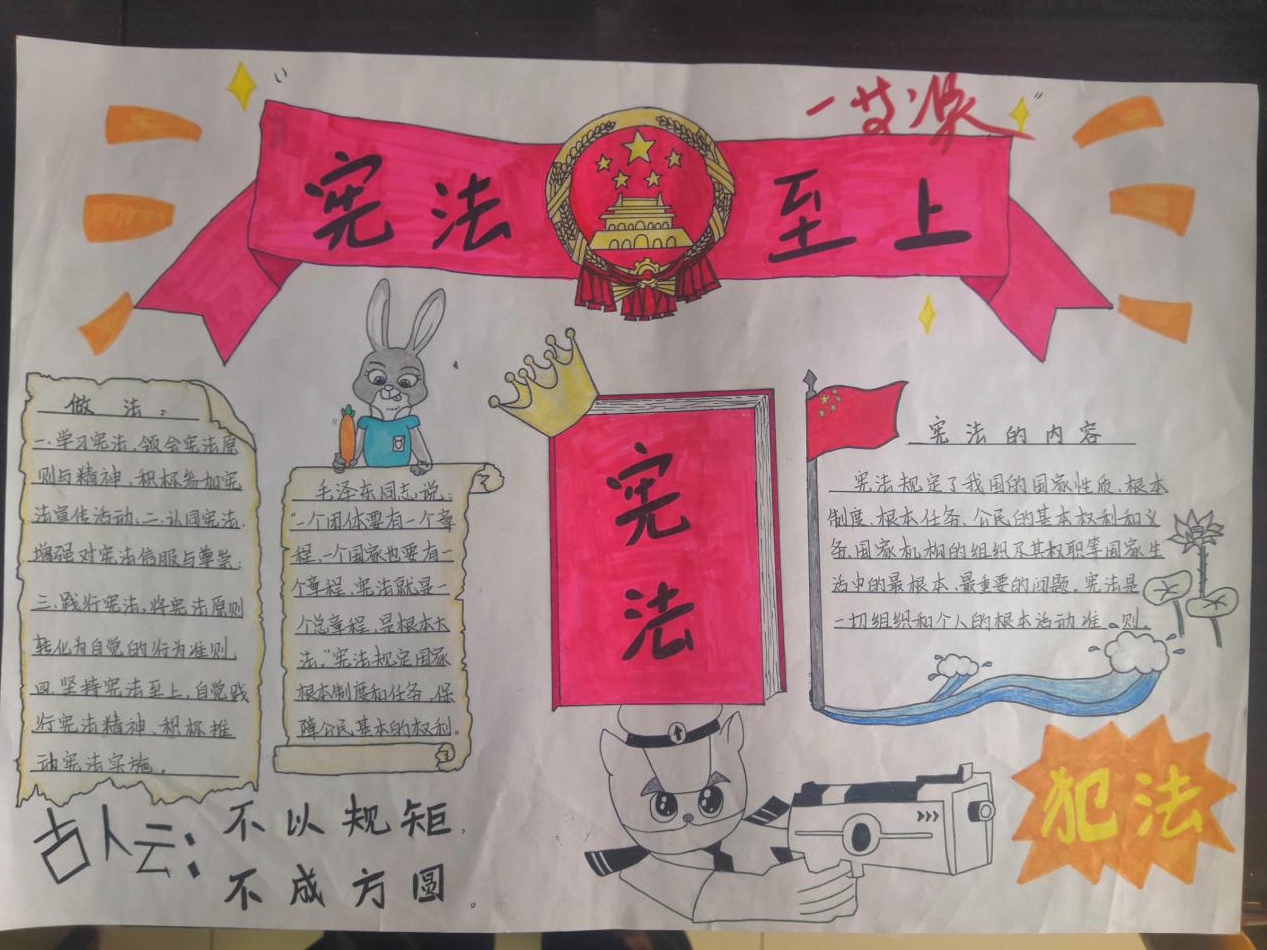 宪法至上
做法：
一.学习宪法,领会宪法原
则与精神,积极参加宪
法宣传活动,二.认同宪法,
增强对宪法信服与尊崇.
三.践行宪法,将宪法原则
转化为自觉的行为准则.
四.坚持宪法至上,自觉践
行宪法精神,积极推
动宪法实施.
毛泽东同志说:
“一个团体要有一个章
程,一个国家也要有一
个章程,宪法就是一
个总章程,是根本大
法.”宪法规定国家
根本制度和任务,保
障公民基本的权利。
宪法
宪法的内容
宪法规定了我国的国家性质,根本
制度,根本任务,公民的基本权利和义
务,国家机构的组织及其权职等国家生
活中的最根本,最重要的问题,宪法是
一切组织和个人的根本活动准则.
古人云:
不以规矩,
不成方圆。
犯法